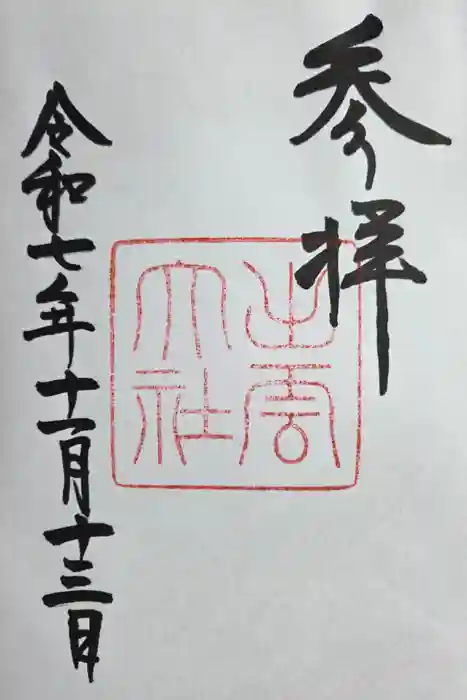 参拝
出雲
大社
令和七年十一月十三日